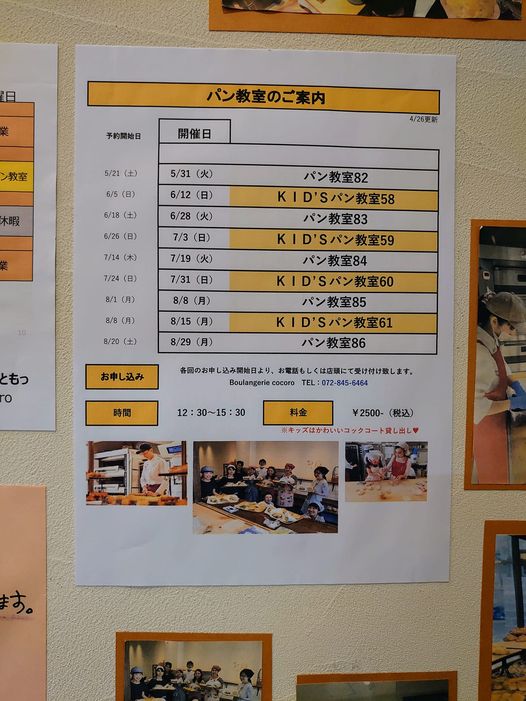 パン教室のご案内
4/26更新
予約開始日 開催日
5/21（土） 5/31（火） パン教室82
6/5（日） 6/12（日） ＫＩＤ’Ｓパン教室58
6/18（土） 6/28（火） パン教室83
6/26（日） 7/3（日） ＫＩＤ’Ｓパン教室59
7/14（木） 7/19（火） パン教室84
7/24（日） 7/31（日） ＫＩＤ’Ｓパン教室60
8/1（月） 8/8（月） パン教室85
8/8（月） 8/15（月） ＫＩＤ’Ｓパン教室61
8/20（土） 8/29（月） パン教室86
お申し込み 各回のお申し込み開始日より、お電話もしくは店頭にて受け付け致します。
Boulangerie cocoro TEL：072-845-6464
時間 12：30～15：30 料金 ￥2500-（税込）
※キッズはかわいいコックコート貸し出し♥
曜日
業
ン教室
休暇
業
16
ともっ
ro
ます。